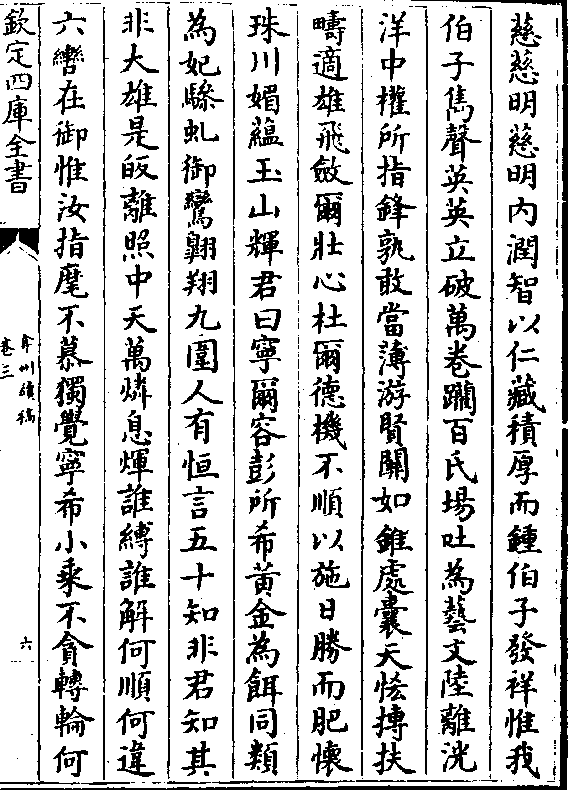 慈慈明慈明内潤智以仁藏積厚而鍾伯子發祥惟我
伯子雋聲英英立破萬巻躝百氏場吐為藝文陸離洸
洋中權所指鋒孰敢當薄游賢關如錐處囊天恡摶扶
疇適雄飛斂爾壯心杜爾德機不順以施日勝而肥懐
珠川媚藴玉山輝君曰寧爾容彭所希黄金為餌同類
為妃驂虬御鸞翺翔九圍人有恒言五十知非君知其
非大雄是皈離照中天萬燐息煇誰縛誰解何順何違
六轡在御惟汝指麾不慕獨覺寧希小乗不貪轉輪何
欽定四庫全書
弇州續稿
巻三
六